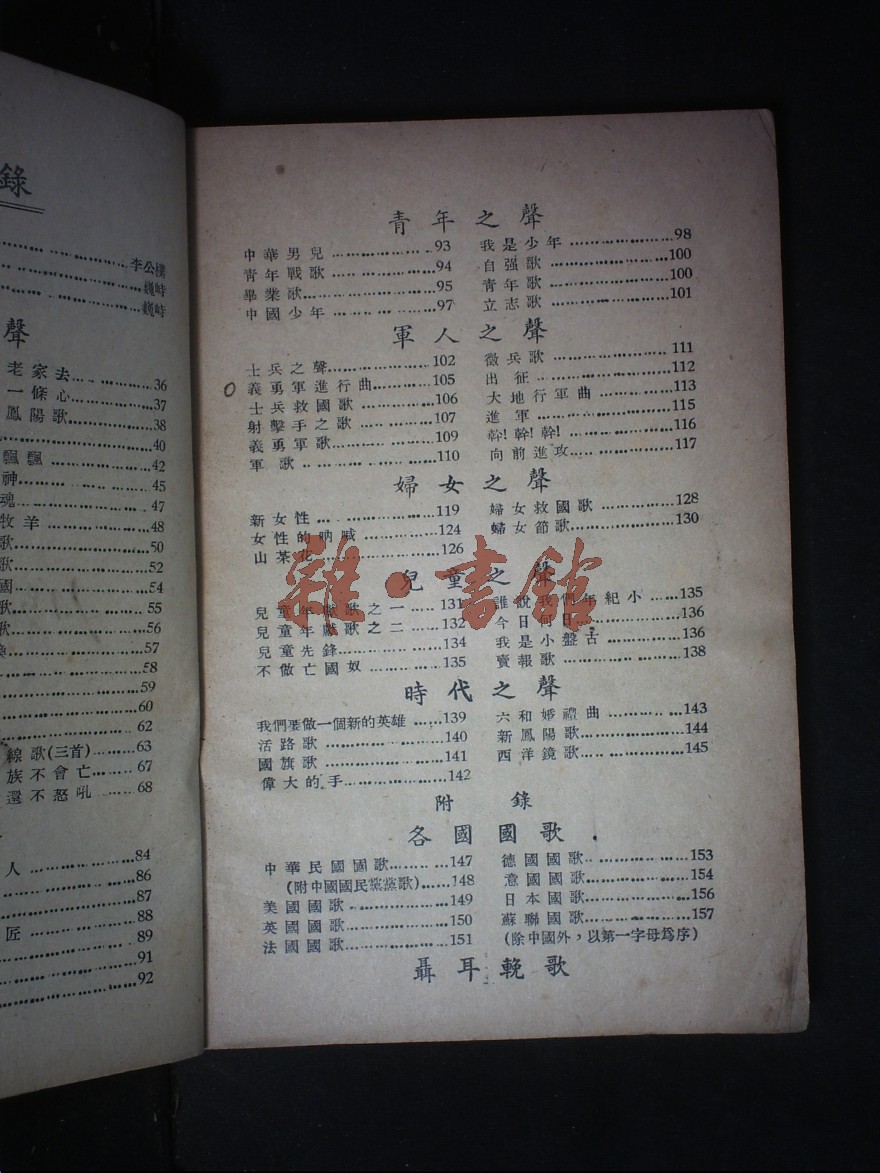 錄
李公樸
巍峙
巍峙
聲
老家去 36
一條心 37
鳳陽歌 38
40
飄飄 42
神 45
魂 47
牧羊 48
歌 50
歌 52
國 54
歌 55
歌 56
57
58
59
60
62
線歌(三首) 63
族不會亡 67
還不怒吼 68
84
人 86
87
匠 88
89
91
92
青年之聲
中華男兒 93
青年戰歌 94
畢業歌 95
中國少年 97
我是少年 98
自强歌 100
青年歌 100
立志歌 101
軍人之聲
士兵之聲 102
義勇軍進行曲 105
士兵救國歌 106
射擊手之歌 107
義勇軍歌 109
軍歌 110
徵兵歌 111
出征 112
大地行軍曲 113
進軍 115
幹!幹!幹! 116
向前進攻 117
婦女之聲
新女性 119
女性的吶喊 124
山茶花 126
婦女救國歌 128
婦女節歌 130
兒童之聲
兒童年獻歌之一 131
兒童年獻歌之二 132
兒童先鋒 134
不做亡國奴 135
誰說我們年紀小 135
今日何日 136
我是小盤古 136
賣報歌 138
時代之聲
我們要做一個新的英雄 139
活路歌 140
國旗歌 141
偉大的手 142
六和婚禮曲 143
新鳳陽歌 144
西洋鏡歌 145
附錄
各國國歌
中華民國國歌 147
(附中國國民黨黨歌) 148
美國國歌 149
英國國歌 150
法國國歌 151
德國國歌 153
意國國歌 154
日本國歌 156
蘇聯國歌 157
(除中國外，以第一字母爲序)
聶耳輓歌
雜·書館